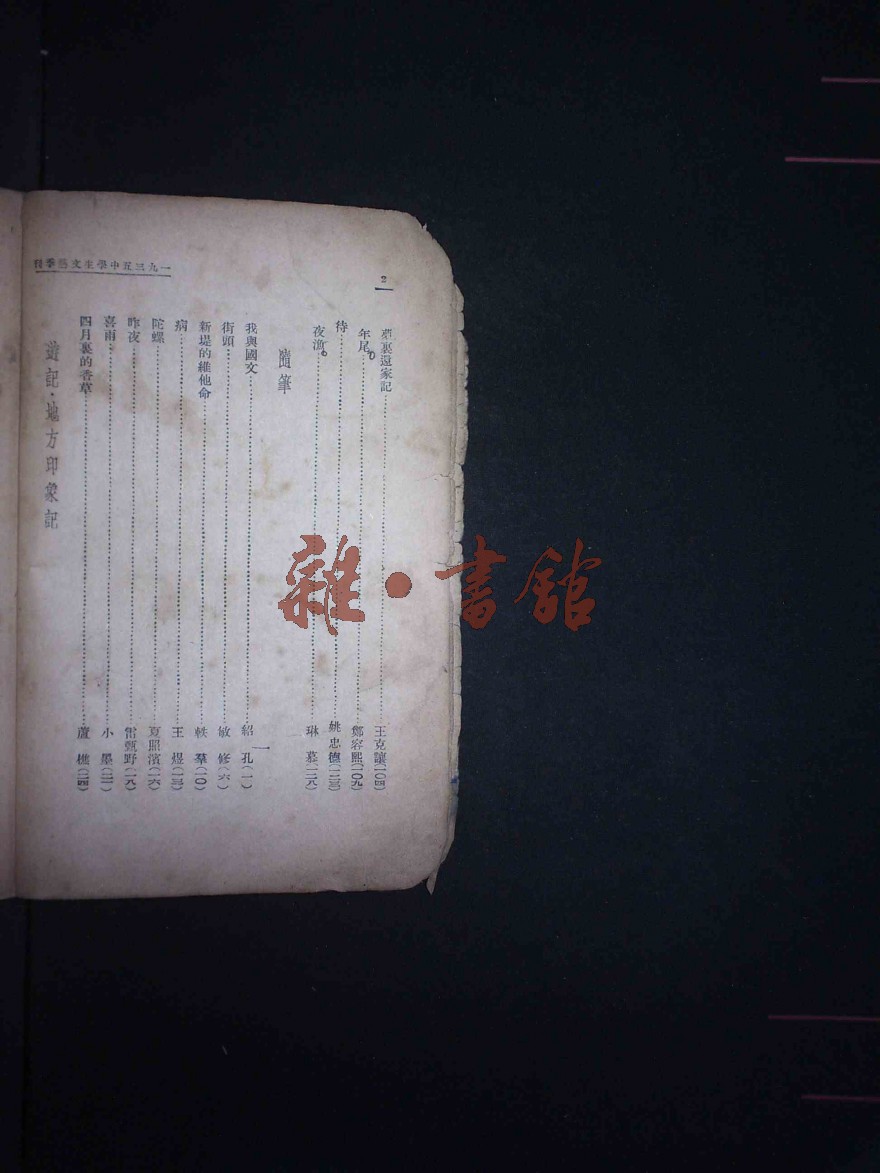 2
一九三五中學生文藝季刊
裏還家記 王克讓(一〇四)
年尾 鄭容熙(一〇九)
待 姚忠德(一二三)
夜漁 琳慕(一二八)
隨筆
我與國文 紹孔(一)
街頭 敏修(六)
新堤的維他命 軼羣(一〇)
病 王煜(一三)
陀螺 夏照濱(一六)
昨夜 雷甄野(一九)
喜雨 小墨(二一)
四月裏的香草 蘆樵(二四)
遊記·地方印象記
雜·書館